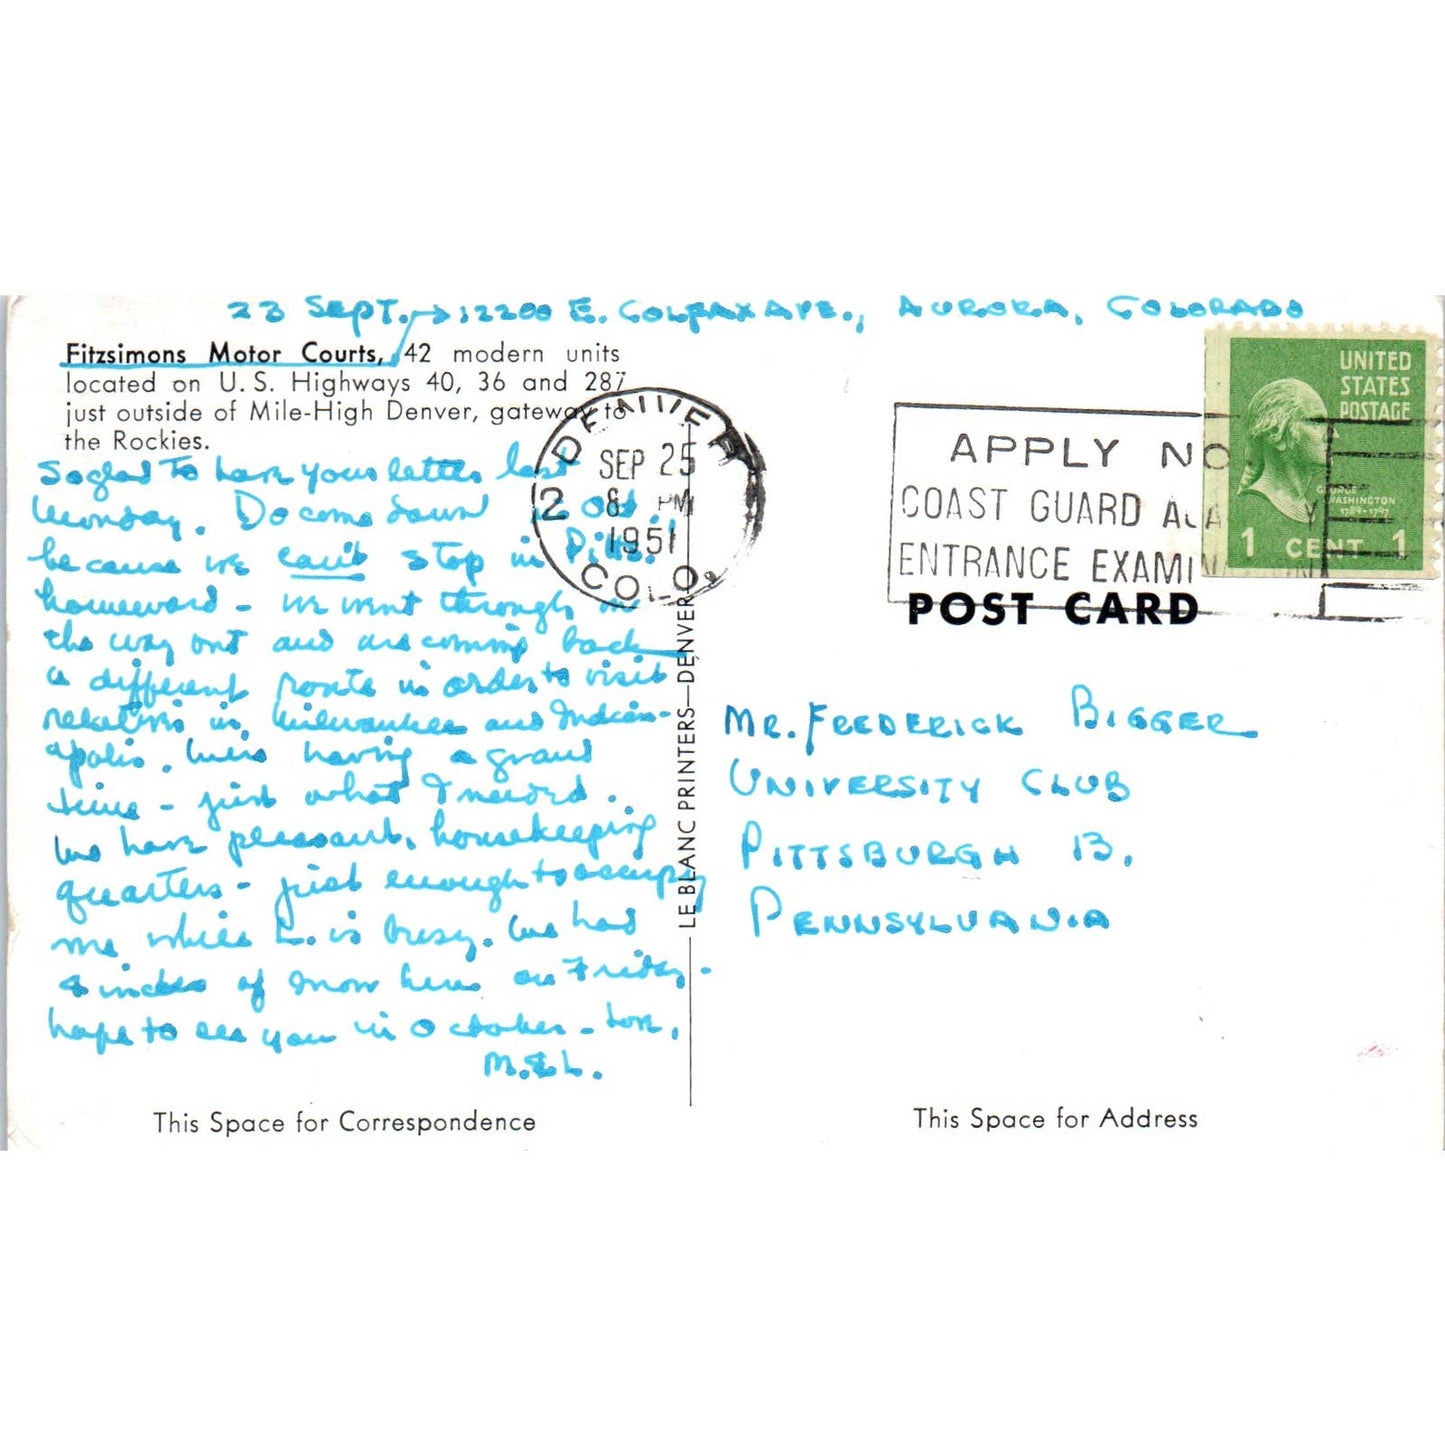 23 SEPT. → 12200 E. COLFAX AVE., AURORA, COLORADO
Fitzsimons Motor Courts, 42 modern units
located on U. S. Highways 40, 36 and 287
just outside of Mile-High Denver, gateway to
the Rockies.
So glad to have your letter last
Monday. Do come down in Oct.!
because we can't stop in Pitts.
homeward - we went through on
the way out and are coming back
a different route in order to visit
relatives in Milwaukee and Indian-
apolis. We're having a grand
time - just what I needed.
We have pleasant, housekeeping
quarters - just enough to occupy
me while L. is busy. We had
4 inches of snow here on Friday.
hope to see you in October - love,
M. & L.
This Space for Correspondence
LE BLANC PRINTERS—DENVER
DENVER
2
SEP 25
8 PM
1951
COLO.
APPLY NO
COAST GUARD ACA Y
ENTRANCE EXAMINATION
UNITED
STATES
POSTAGE
GEORGE
WASHINGTON
1789-1797
1 CENT 1
POST CARD
MR. FREDERICK BIGGER
UNIVERSITY CLUB
PITTSBURGH 13,
PENNSYLVANIA
This Space for Address